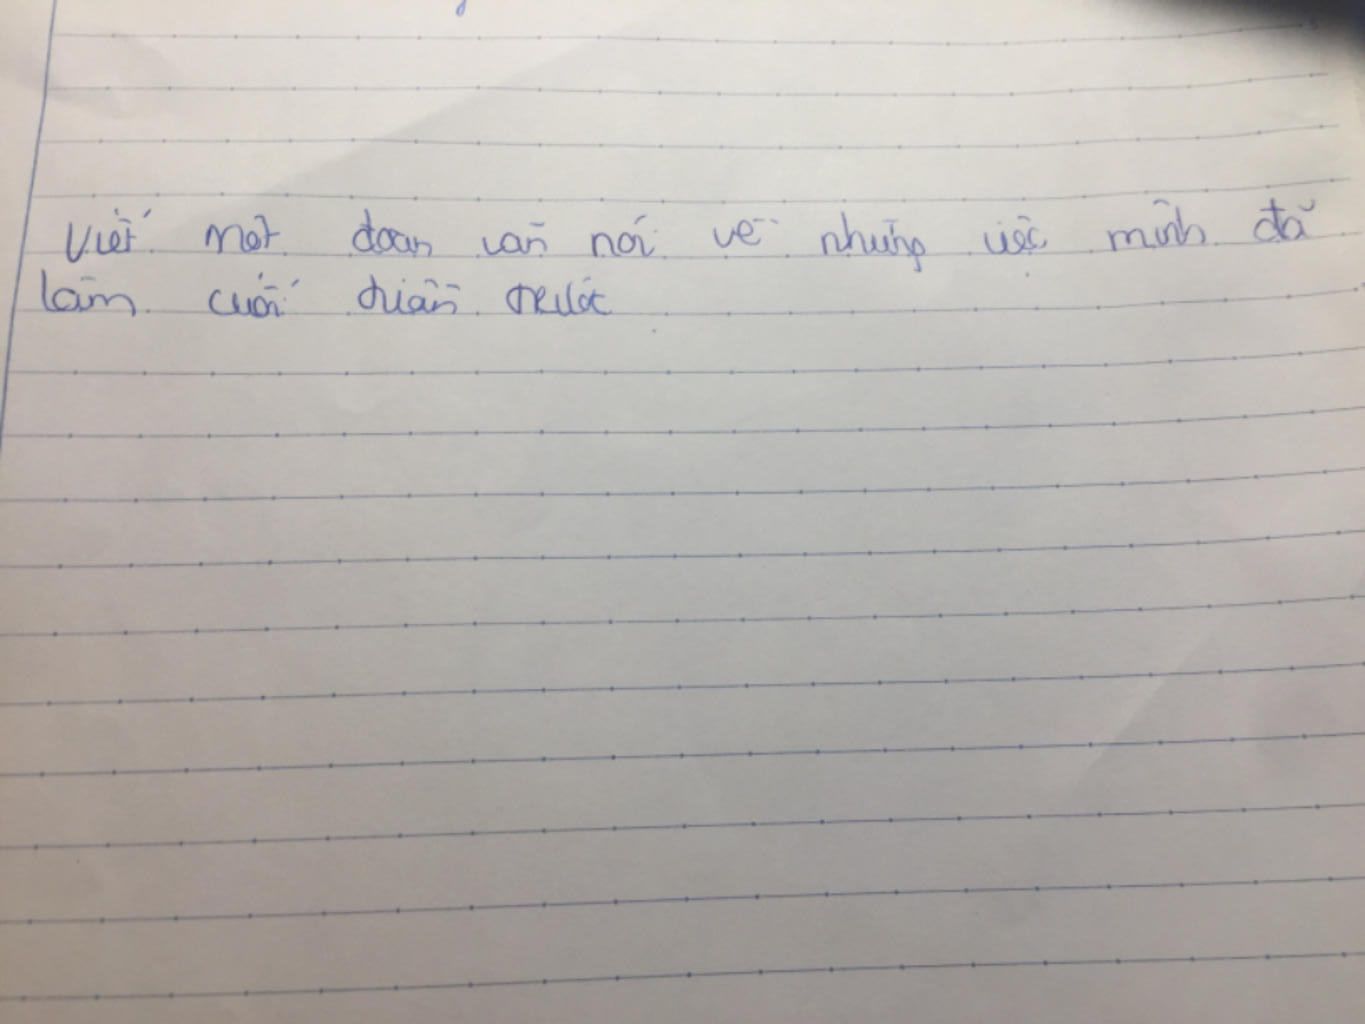 Viết một đoạn văn nói về những việc mình đã
làm cuối tuần trước